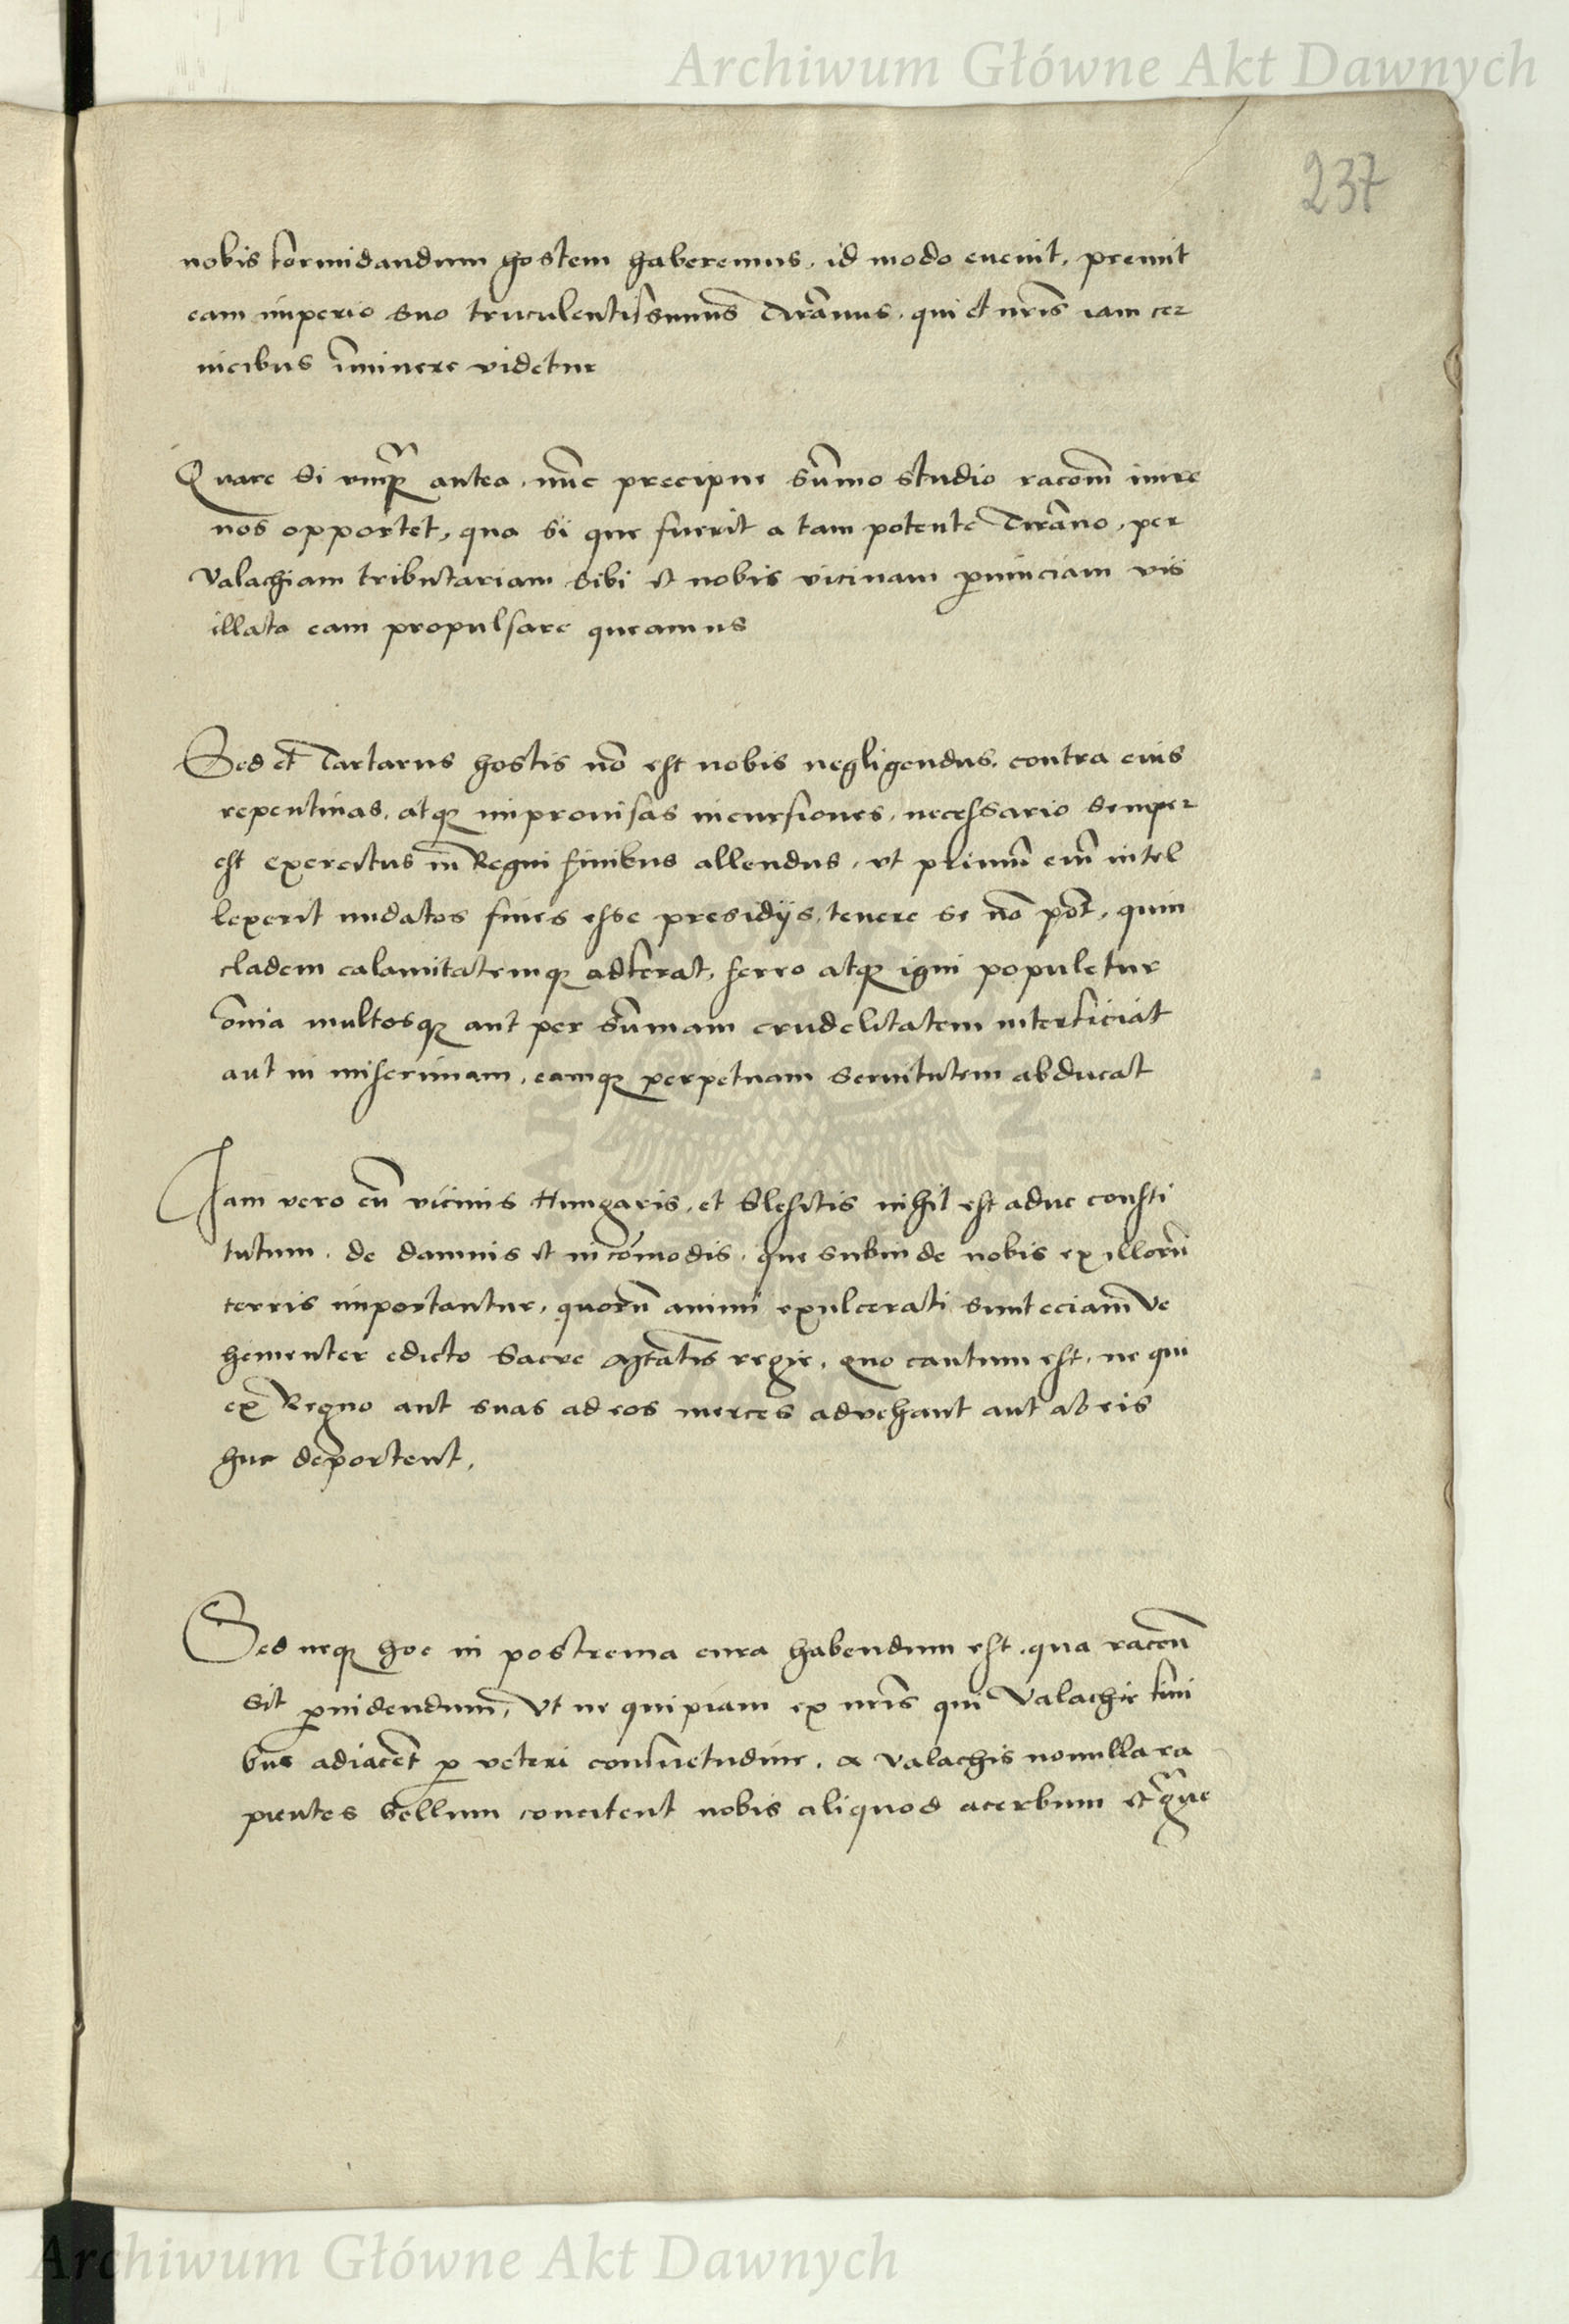 Archiwum Główne Akt Dawnych
237
nobis formidandum hostem haberemus, id modo euenit, premit
eam imperio suo truculentissimus Tirānus, qui et nr̄is iam cer
uicibus īminere videtur
Quare si vmq̄ antea, nūc precipue sūmo studio racōm inire
nos opportet, qua si que fuerit a tam potente Tirāno, per
Valachiam tributariam sibi et nobis vicinam ꝓuinciam vis
illata eam propulsare queamus
Sed et Tartarus hostis nō est nobis negligendus, contra eius
repentinas, atqꝫ improuisas incursiones, necessario semper
est exercitus in Regni finibus allendus, vt primū em̄ intel
lexerit nudatos fines esse presidijs, tenere se nō pōt, quin
cladem calamitatemqꝫ adferat, ferro atqꝫ igni populetur
ōnia multosqꝫ aut per sūmam crudelitatem interficiat
aut in miserimam, eamqꝫ perpetuam seruitutem abducat
Iam vero cū vicinis Hungaris, et Slesitis nihil est aduc consti
tutum, de damnis et incōmodis, que subinde nobis ex illorū
terris importantur, quorū animi exulcerati sunt eciam ve
hementer edicto Sacre Mtātis regie, quo cautum est, ne qui
ex Regno aut suas ad eos merces advehant aut ab eis
huc deportent.
Sed neqꝫ hoc in postrema cura habendum est, qua racōn
sit ꝓuidendum, Vt ne quipiam ex nr̄is qui Valachie fini
bus adiacēt ꝓ veteri consuetudine, a Valachis nonulla ra
pientes bellum concitent nobis aliquod acerbum et gr̄ue
Archiwum Główne Akt Dawnych